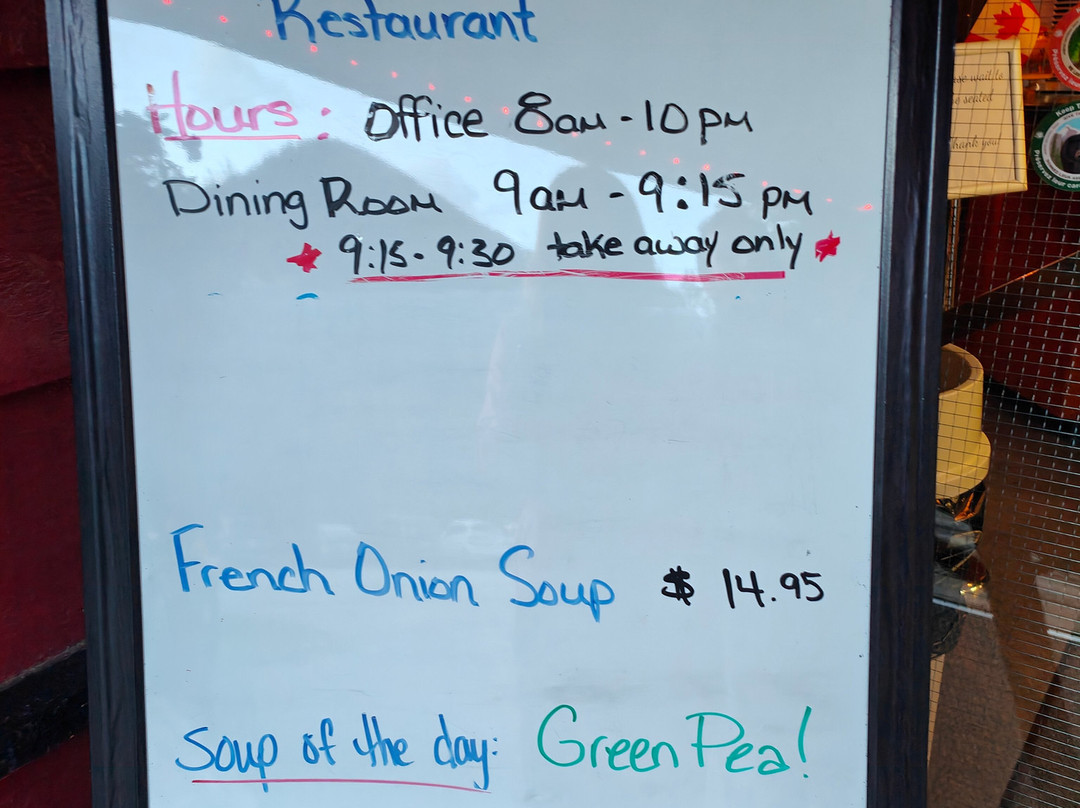 Restaurant
Hours: Office 8am - 10pm
Dining Room 9am - 9:15 pm
9:15 - 9:30 take away only
French Onion Soup $ 14.95
Soup of the day: Green Pea!
wait to
seated
thank you!
Keep